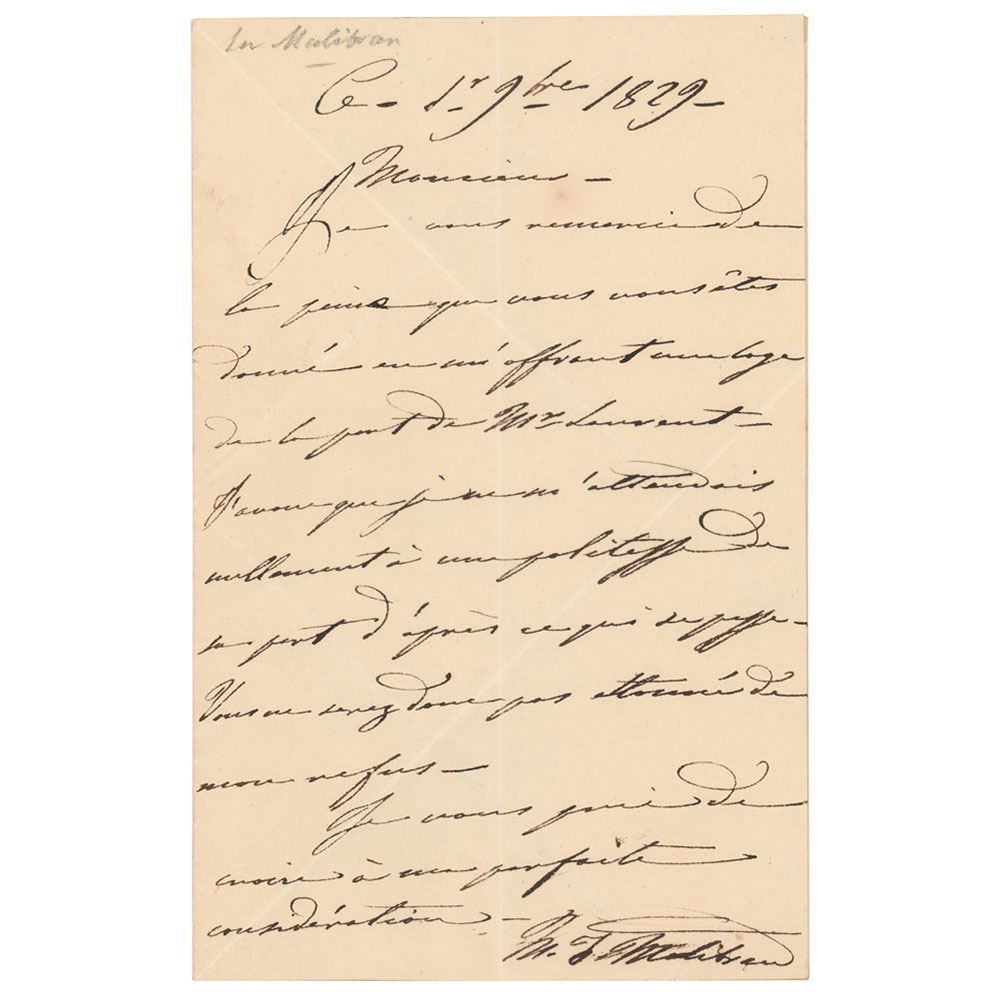 La Malibran
Ce - 1r 9bre 1829 -
Monsieur -
Je vous remercie de
la peine que vous vous êtes
donné en m'offrant une loge
de la part de Mr Laurent -
J'avoue que je ne m'attendais
nullement à une politesse de
sa part d'après ce qui se passe -
Vous ne serez donc pas étonné de
mon refus -
Je vous prie de
croire à ma parfaite
considération -
M. F. Malibran